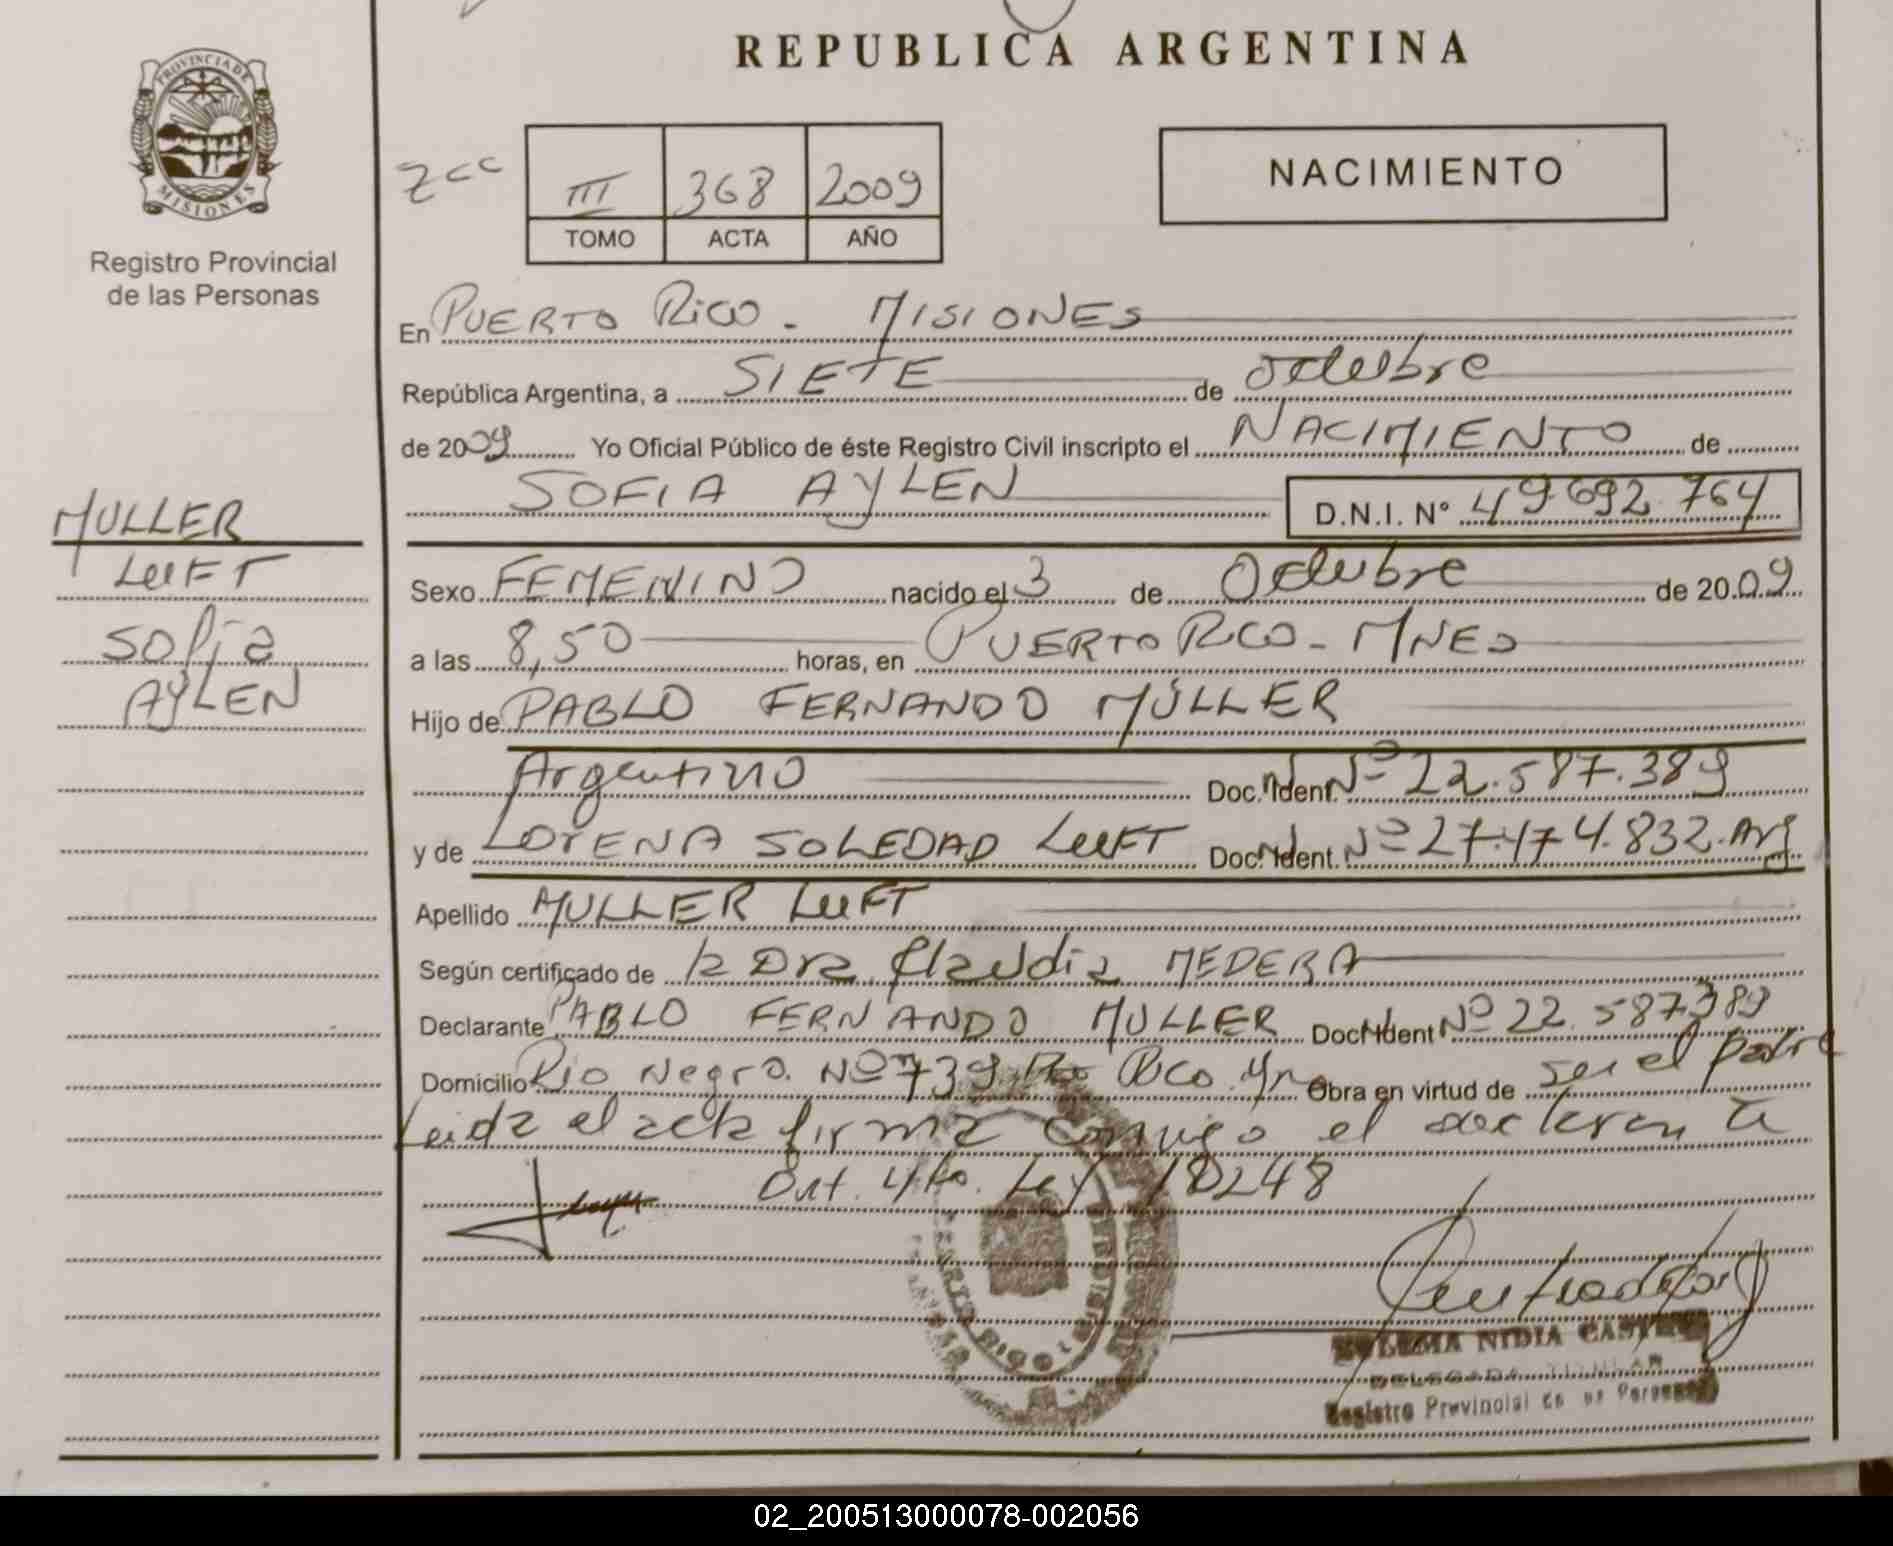 REPUBLICA ARGENTINA
PROVINCIA DE
MISIONES
Registro Provincial
de las Personas
zcc
III 368 2009
TOMO ACTA AÑO
NACIMIENTO
En PUERTO RICO - MISIONES
República Argentina, a SIETE de octubre
de 2009 Yo Oficial Público de éste Registro Civil inscripto el NACIMIENTO de
SOFIA AYLEN D.N.I. Nº 49.692.764
MULLER
LUFT
Sofia
AYLEN
Sexo FEMENINO nacido el 3 de Octubre de 2009
a las 8,50 horas, en PUERTO RICO - MNES
Hijo de PABLO FERNANDO MÜLLER
Argentino Doc. Ident. Nº 22.587.389
y de LORENA SOLEDAD LUFT Doc. Ident. Nº 27.474.832. Arg
Apellido MULLER LUFT
Según certificado de la Dra. Claudia MEDERA
Declarante PABLO FERNANDO MULLER Doc. Ident Nº 22.587389
Domicilio Rio Negro. Nº 739 Pto Rico. Mnes Obra en virtud de ser el padre
Leida el acta firma conmigo el declarante
Art. 4to. Ley 18248
PUERTO RICO
MISIONES
NIDIA
DELEGADA TITULAR
Registro Provincial de las Personas
02_200513000078-002056